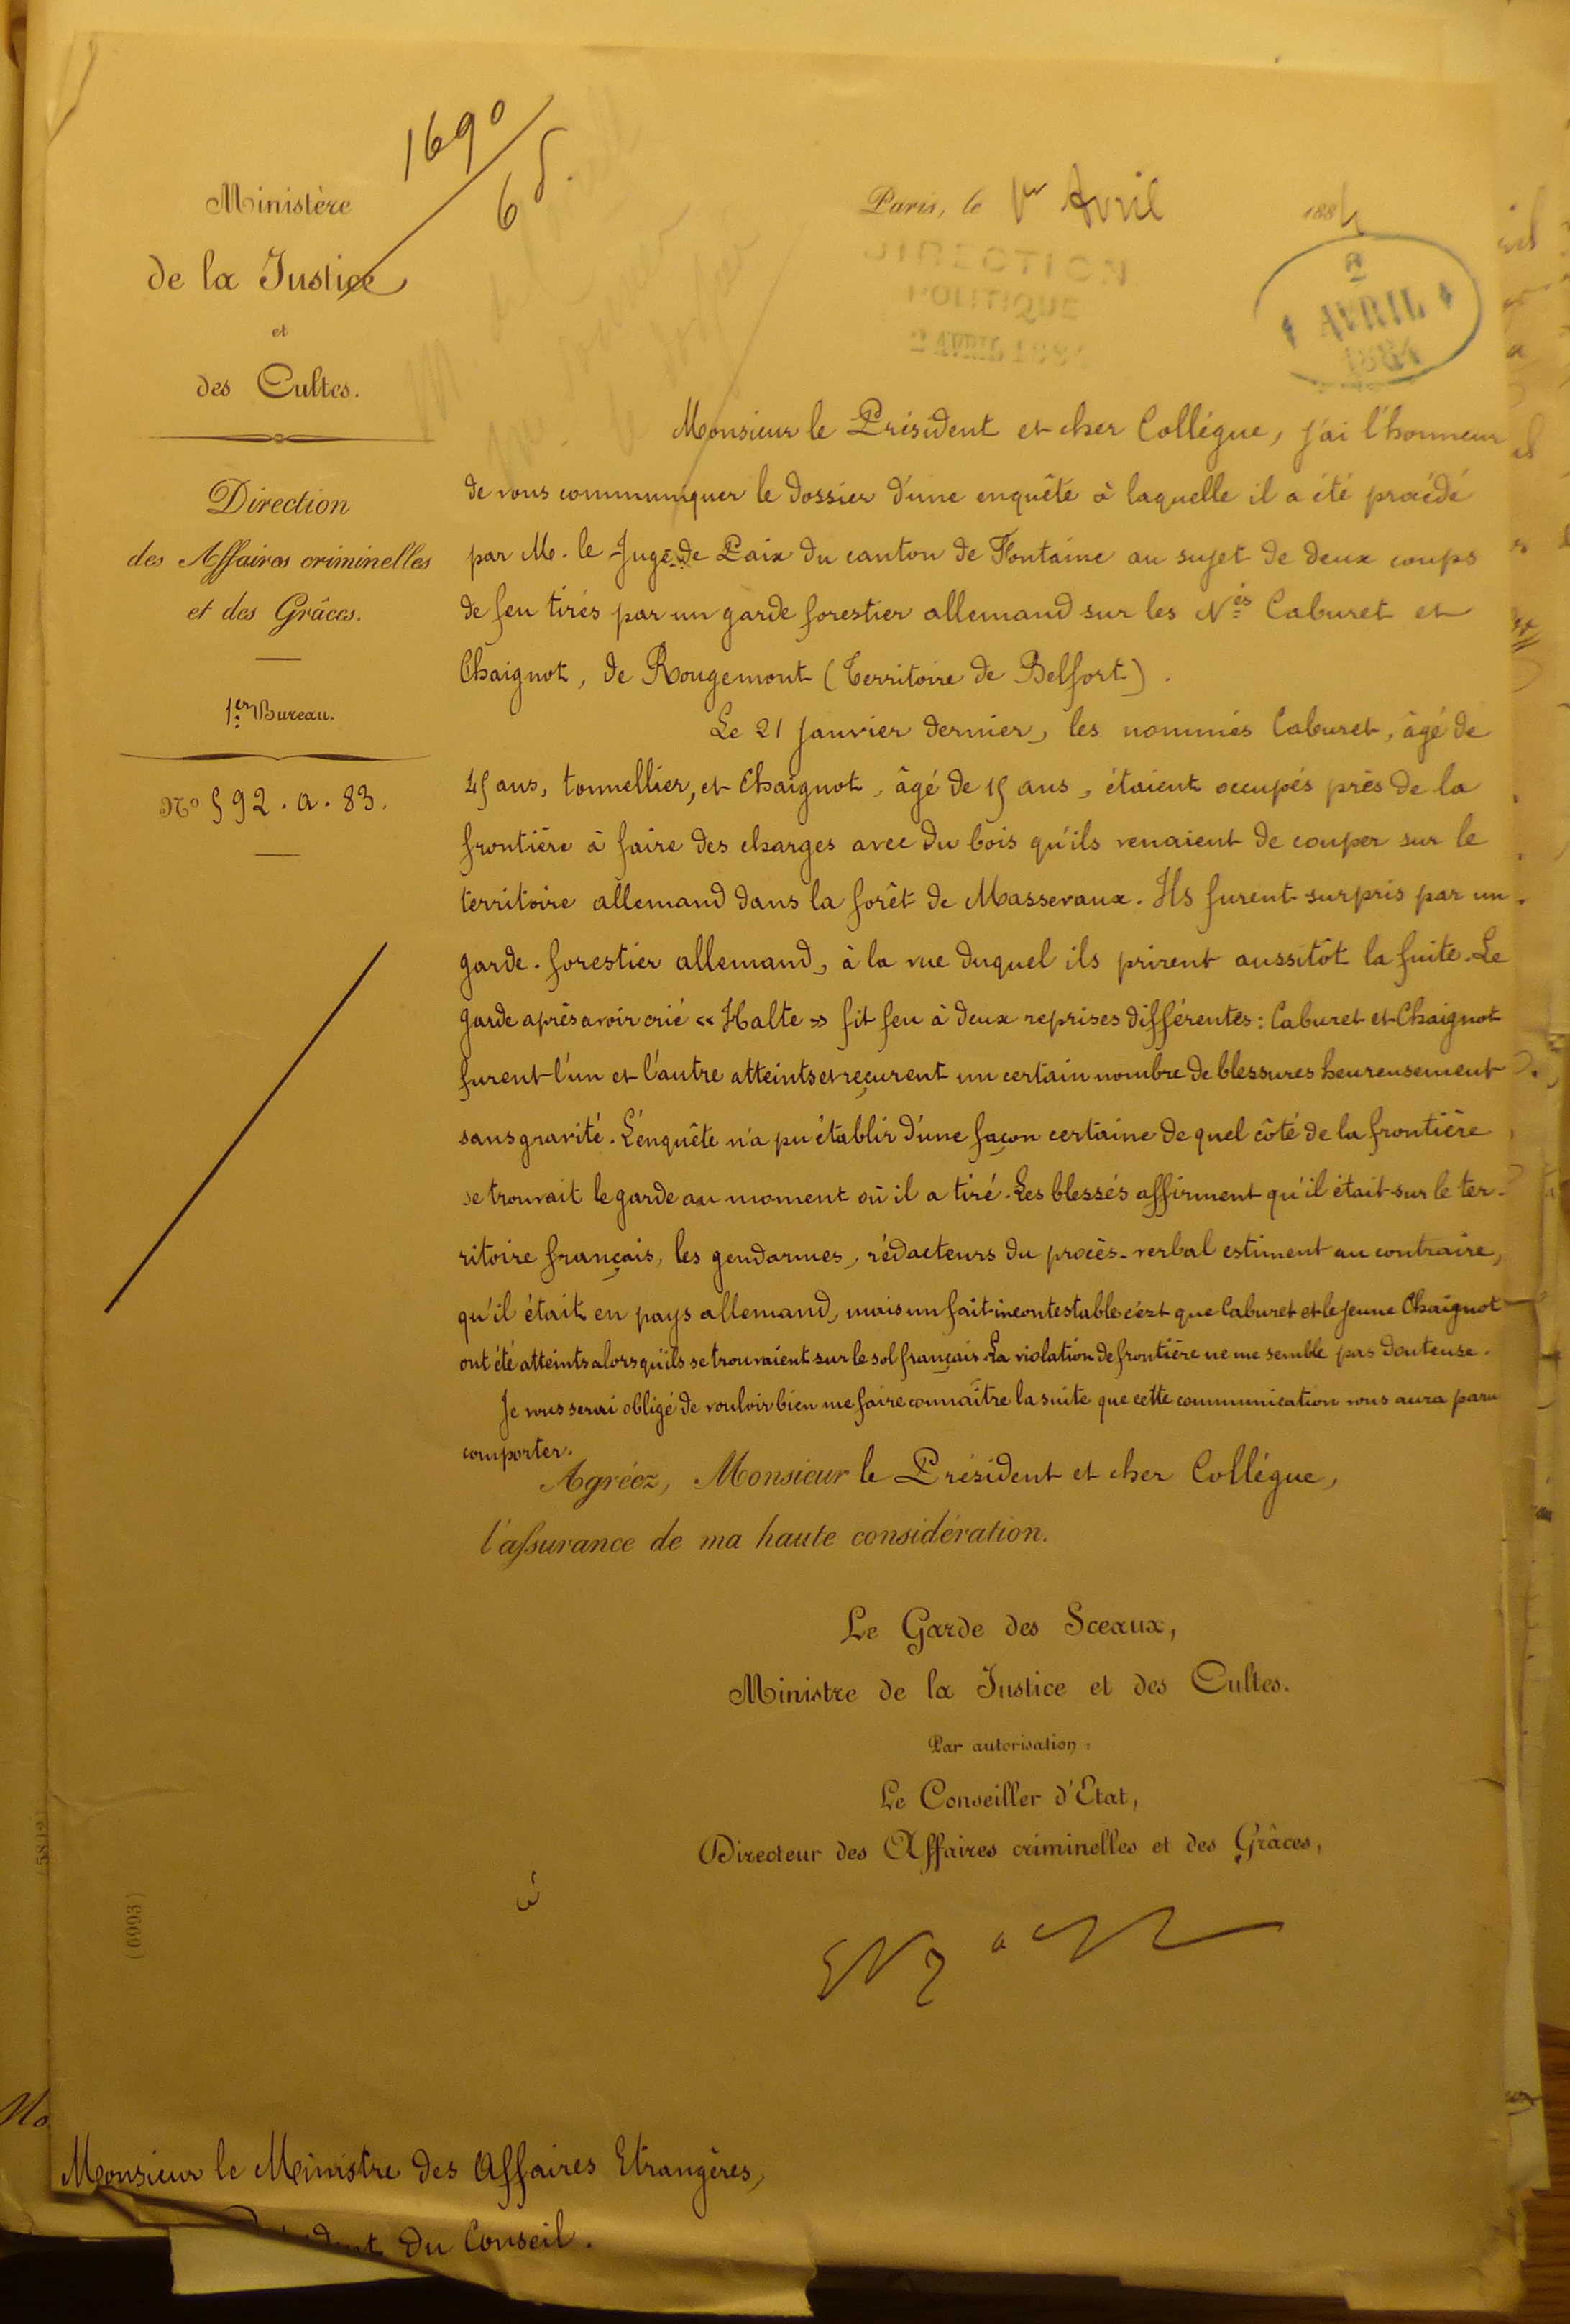 1690
65.
Ministère
de la Justice
et
des Cultes.
Direction
des Affaires criminelles
et des Grâces.
1er Bureau.
No 592. a. 83.
Paris, le 1er Avril 1884
DIRECTION
POLITIQUE
2 AVRIL 188
2
AVRIL
1884
Monsieur le Président et cher Collégue, j'ai l'honneur
de vous communiquer le dossier d'une enquête à laquelle il a été procédé
par M. le Juge de Paix du canton de Fontaine au sujet de deux coups
de feu tirés par un garde forestier allemand sur les Nés Caburet et
Chaignot, de Rougemont (Territoire de Belfort).
Le 21 Janvier dernier, les nommés Caburet, âgé de
45 ans, tonnellier, et Chaignot, âgé de 15 ans, étaient occupés près de la
frontière à faire des charges avec du bois qu'ils venaient de couper sur le
territoire allemand dans la forêt de Massevaux. Ils furent surpris par un
garde-forestier allemand, à la vue duquel ils prirent aussitôt la fuite. Le
garde après avoir crié « Halte » fit feu à deux reprises différentes : Caburet et Chaignot
furent l'un et l'autre atteints et reçurent un certain nombre de blessures heureusement
sans gravité. L'enquête n'a pu établir d'une façon certaine de quel côté de la frontière
se trouvait le garde au moment où il a tiré. Les blessés affirment qu'il était sur le ter-
ritoire français, les gendarmes, rédacteurs du procès-verbal estiment au contraire,
qu'il était en pays allemand, mais un fait incontestable c'est que Caburet et le jeune Chaignot
ont été atteints alors qu'ils se trouvaient sur le sol français. La violation de frontière ne me semble pas douteuse.
Je vous serai obligé de vouloir bien me faire connaître la suite que cette communication vous aura paru
comporter.
Agréez, Monsieur le Président et cher Collégue,
l'assurance de ma haute considération.
Le Garde des Sceaux,
Ministre de la Justice et des Cultes.
Par autorisation :
Le Conseiller d'Etat,
Directeur des Affaires criminelles et des Grâces,
(6993)
Monsieur le Ministre des Affaires Etrangères,
du Conseil.